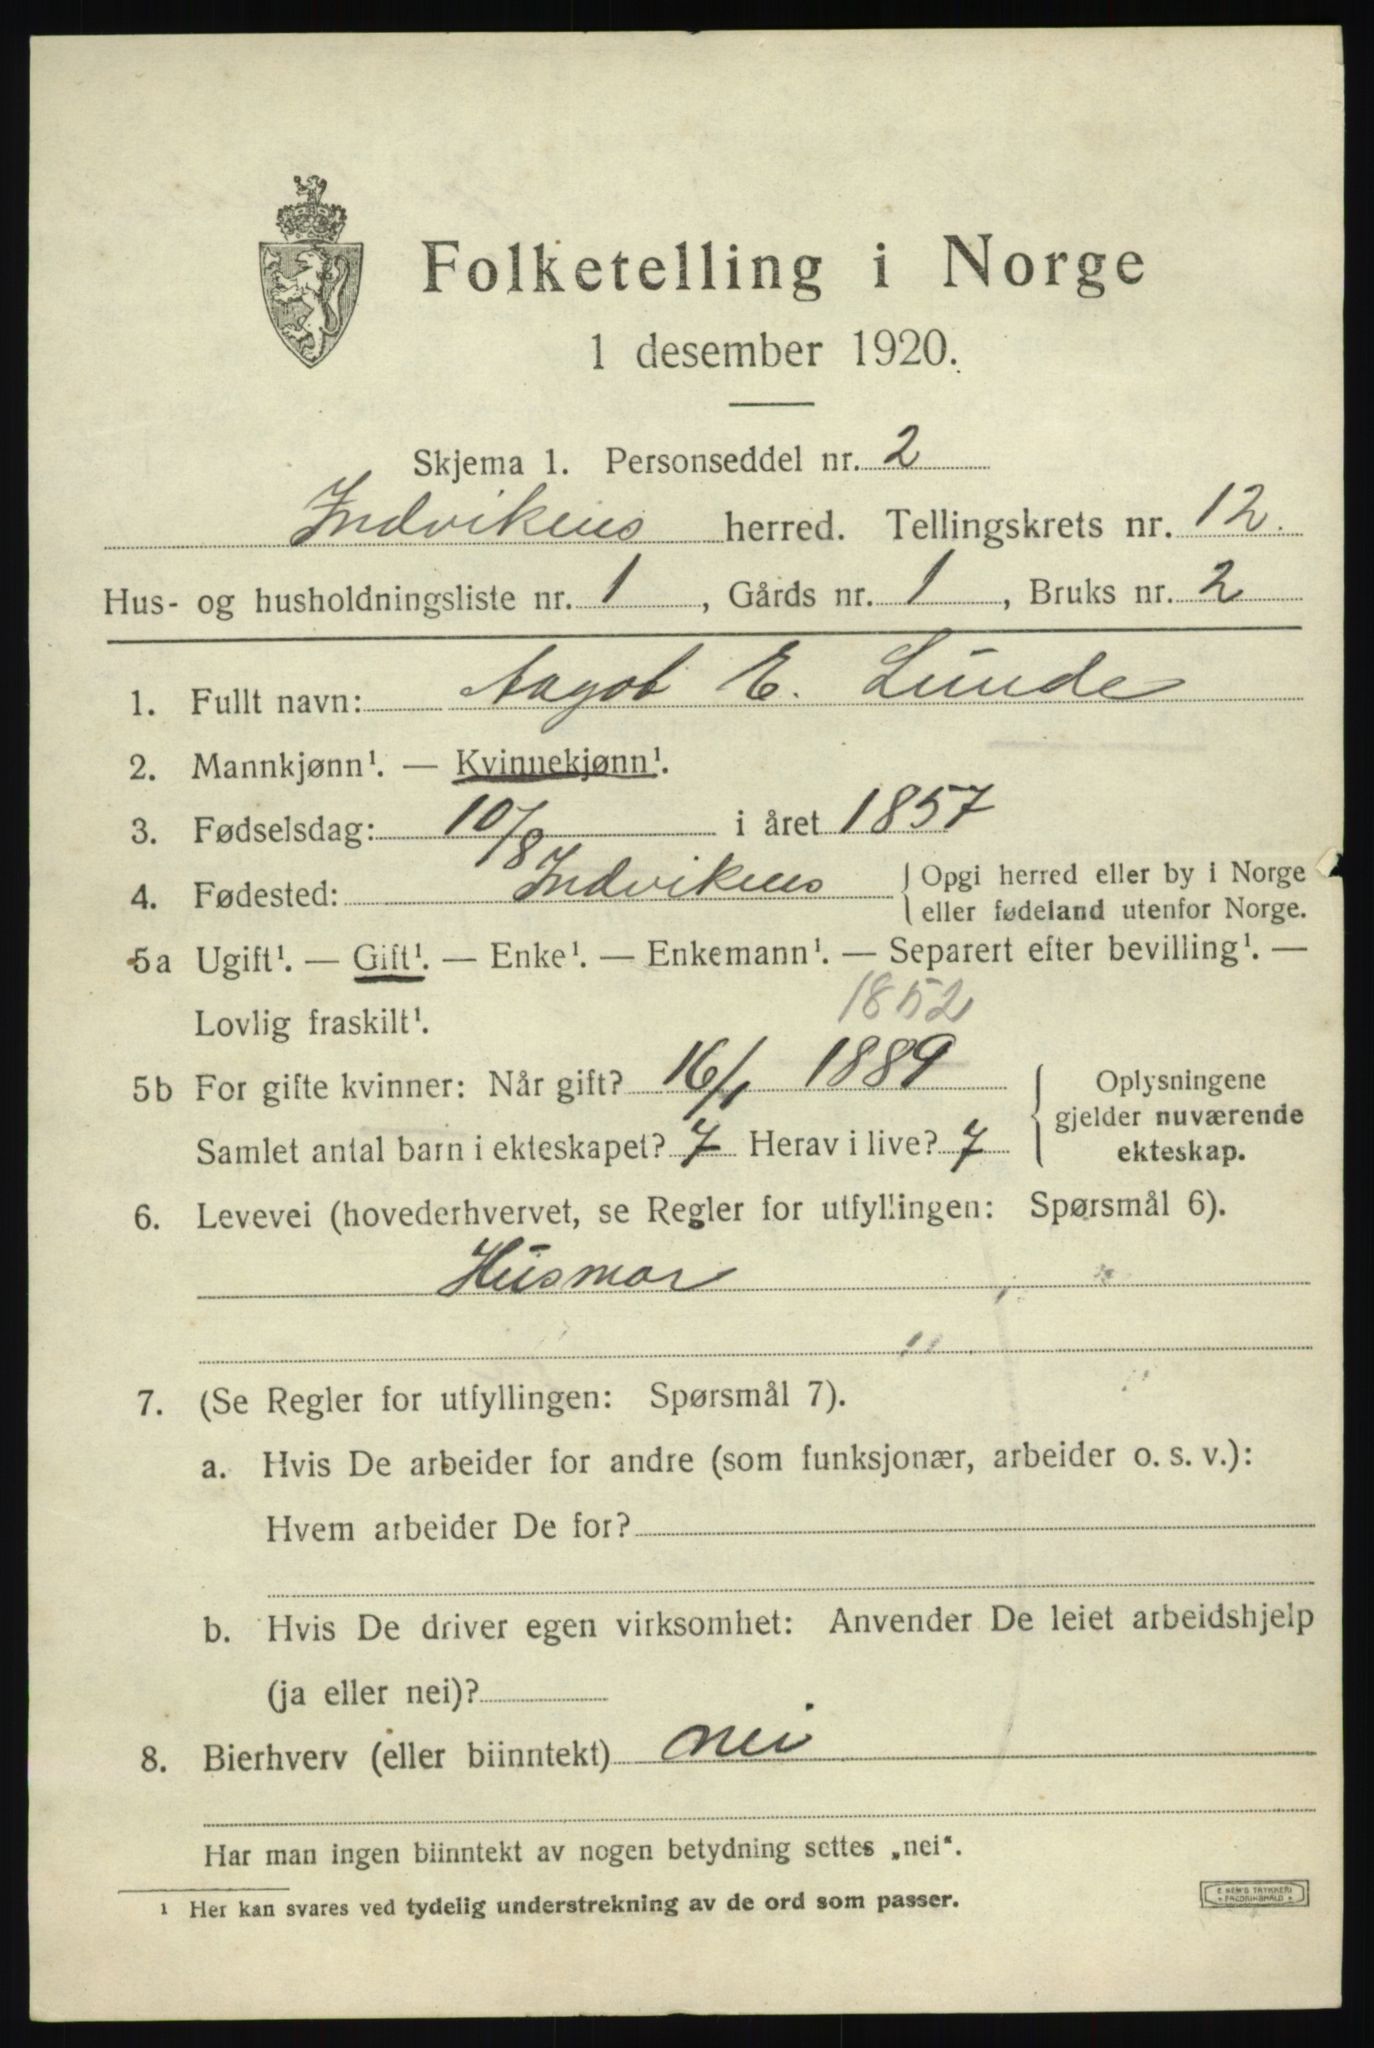 Folketelling i Norge
1 desember 1920.
Skjema 1. Personseddel nr. 2
Indvikens herred. Tellingskrets nr. 12.
Hus- og husholdningsliste nr. 1, Gårds nr. 1, Bruks nr. 2
1. Fullt navn: Aagot E. Lunde
2. Mannkjønn¹. — Kvinnekjønn¹.
3. Fødselsdag: 10/8 i året 1857
4. Fødested: Indvikens { Opgi herred eller by i Norge
eller fødeland utenfor Norge.
5a Ugift¹. — Gift¹. — Enke¹. — Enkemann¹. — Separert efter bevilling¹. —
Lovlig fraskilt¹. 1852
5b For gifte kvinner: Når gift? 16/1 1889 { Oplysningene
gjelder nuværende
Samlet antal barn i ekteskapet? 7 Herav i live? 7 ekteskap.
6. Levevei (hovederhvervet, se Regler for utfyllingen: Spørsmål 6).
Husmor
7. (Se Regler for utfyllingen: Spørsmål 7).
a. Hvis De arbeider for andre (som funksjonær, arbeider o. s. v.):
Hvem arbeider De for?
b. Hvis De driver egen virksomhet: Anvender De leiet arbeidshjelp
(ja eller nei)?
8. Bierhverv (eller biinntekt) nei
Har man ingen biinntekt av nogen betydning settes „nei“.
¹ Her kan svares ved tydelig understrekning av de ord som passer.
E SEM'S TRYKKERI
FREDRIKSHALD